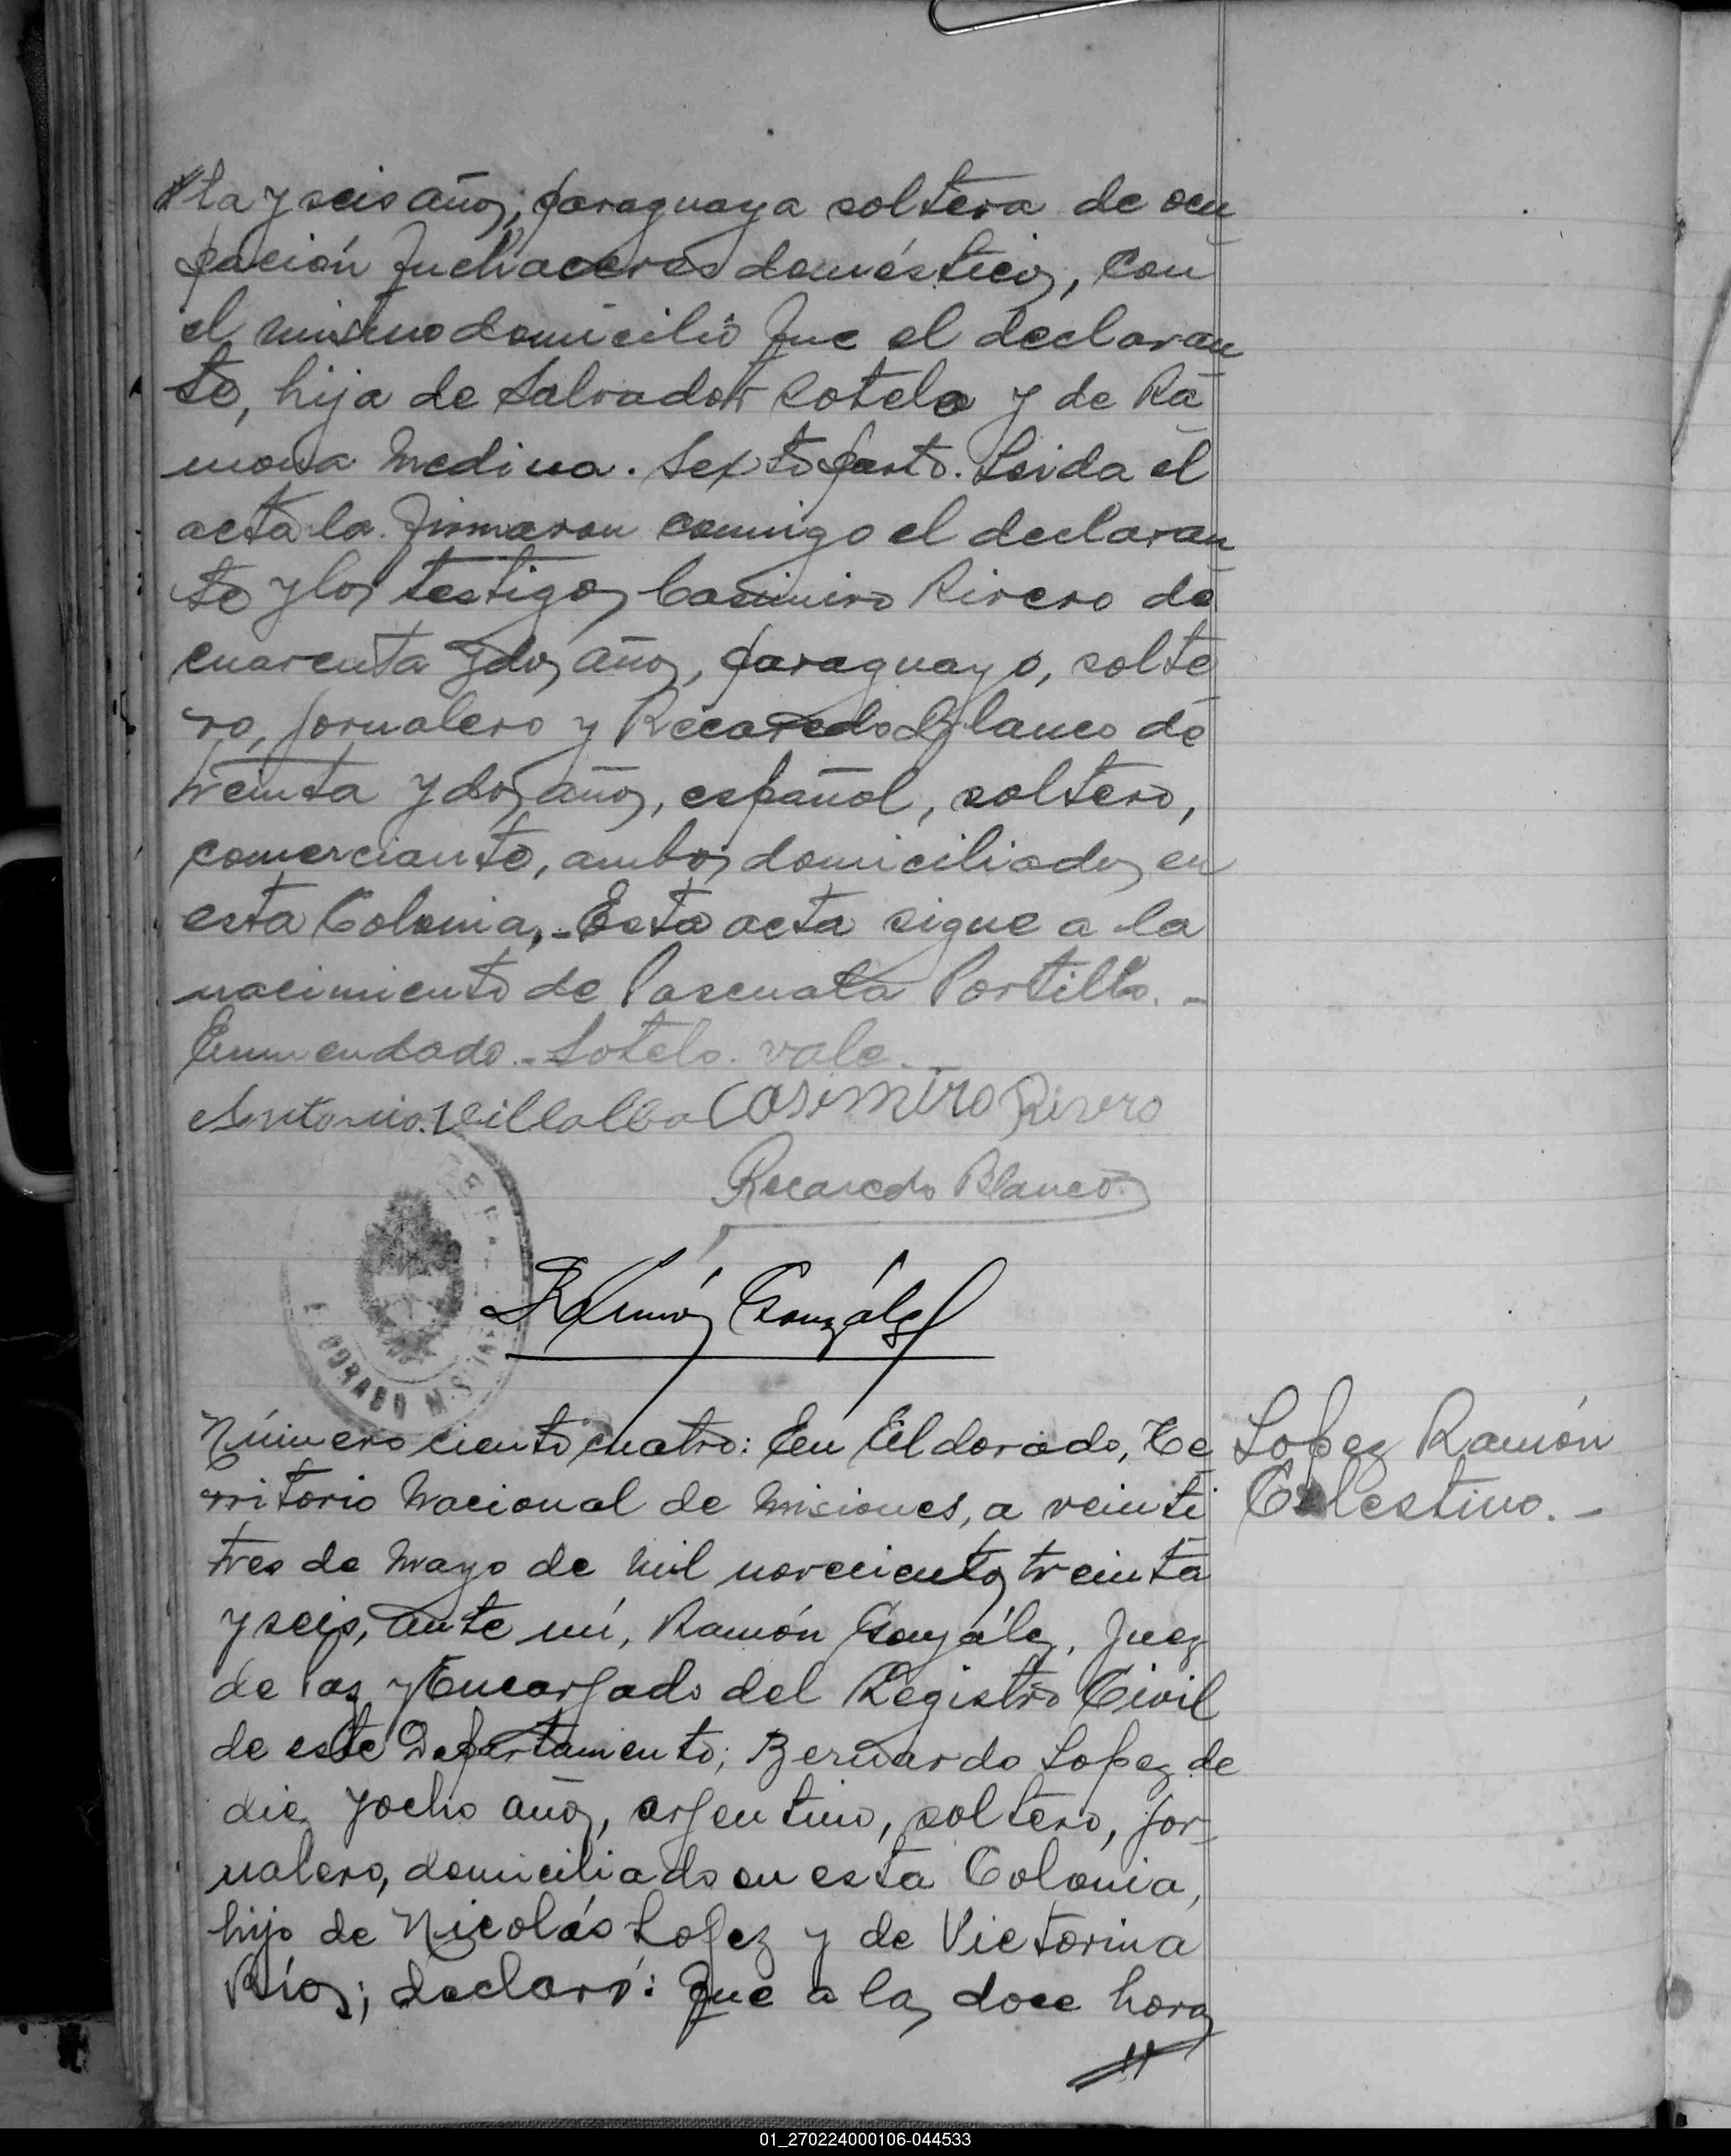 //ta y seis años; paraguaya soltera de ocu
pación quehaceres domésticos, con
el mismo domicilio que el declaran
te, hija de Salvador Sotelo y de Ra
mona Medina. Sexto parto. Leida el
acta la firmaron conmigo el declaran
te y los testigos Casimiro Rivero de
cuarenta y dos años, paraguayo, solte
ro, jornalero y Recaredo Blanco de
treinta y dos años, español, soltero,
comerciante, ambos domiciliados en
esta Colonia,-Esta acta sigue a la
nacimiento de Pascuala Portillo.-
Enmendado.-Sotelo. vale.-
Antonio Villalba Casimiro Rivero
Recaredo Blanco
Ramón González
EL DORADO
Número ciento cuatro: En Eldorado, Te
rritorio Nacional de Misiones, a veinti
tres de Mayo de mil novecientos treinta
y seis, ante mí, Ramón González, Juez
de Paz y Encargado del Registro Civil
de este Departamento; Bernardo Lopez de
diez y ocho años, argentino, soltero, jor-
nalero, domiciliado en esta Colonia,
hijo de Nicolás Lopez y de Victorina
Ríos; declaró: Que a las doce horas
//
Lopez Ramón
Celestino.-
01_270224000106-044533